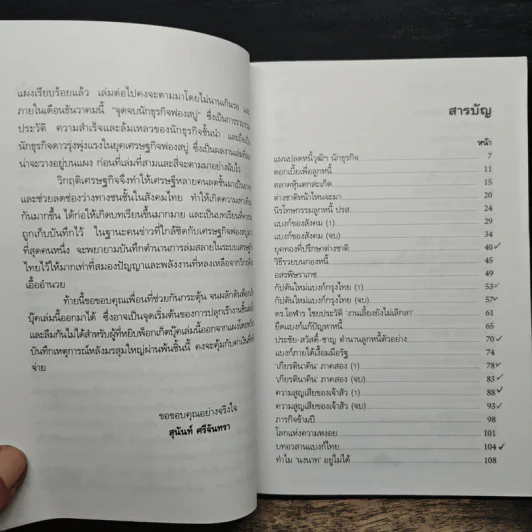 แผงเรียบร้อยแล้ว เล่มต่อไปคงจะตามมาโดยไม่นานเกินรอ
ภายในเดือนธันวาคมนี้ "จุดจบนักธุรกิจฟองสบู่" ซึ่งเป็นการรวบรวม
ประวัติ ความสำเร็จและล้มเหลวของนักธุรกิจชั้นนำ และถือเป็น
นักธุรกิจดาวรุ่งพุ่งแรงในยุคเศรษฐกิจฟองสบู่ ซึ่งเป็นผลงานเล่มที่สอง
น่าจะวางอยู่บนแผง ก่อนที่เล่มที่สามและสี่จะตามมาอย่างฉับไว
วิกฤติเศรษฐกิจจึงทำให้เศรษฐีหลายคนลดชั้นมาเป็น
และช่วยลดช่องว่างทางชนชั้นในสังคมไทย ทำให้เกิดความเท่าเทียม
กันมากขึ้น ได้ก่อให้เกิดบทเรียนขึ้นมากมาย และเป็นบทเรียนที่ควร
ถูกเก็บบันทึกไว้ ในฐานะคนข่าวที่ใกล้ชิดกับเศรษฐกิจฟองสบู่มาก
ที่สุดคนหนึ่ง จะพยายามบันทึกตำนานการล่มสลายในระบบเศรษฐกิจ
ไทยไว้ให้มากเท่าที่สมองปัญญาและพลังงานที่หลงเหลือจาก
เอื้ออำนวย
ท้ายนี้ขอขอบคุณเพื่อนที่ช่วยกันกระตุ้น จนผลักดันพ็อกเก็ต
บุ๊คเล่มนี้ออกมาได้ ซึ่งอาจเป็นจุดเริ่มต้นของการปลุกเร้างานชิ้น
และลืมกันไม่ได้สำหรับผู้ที่หยิบพ็อกเก็ตบุ๊คเล่มนี้ออกจากแผงโดยหวัง
บันทึกเหตุการณ์หลังมรสุมใหญ่ผ่านพ้นชิ้นนี้ คงจะคุ้มกับค่าเงินที่
จ่าย
ขอขอบคุณอย่างจริงใจ
สุนันท์ ศรีจันทรา
สารบัญ
หน้า
แผนปลดหนี้วุฒิฯ นักธุรกิจ 7
ดอกเบี้ยเพื่อลูกหนี้ 11
ตลาดหุ้นตกสะเก็ด 15
ต่างชาติหน้าไหนจะมา 20
นิรโทษกรรมลูกหนี้ ปรส. 24
แบงก์ของสังคม (๑) 29
แบงก์ของสังคม (จบ) 34
ยุคทองที่ปรึกษาต่างชาติ 40
วิธีรวยบนกองหนี้ 45
อสรพิษราเกซ 49
กัปตันใหม่แบงก์กรุงไทย (๑) 53
กัปตันใหม่แบงก์กรุงไทย (จบ) 57
ดร.โอฬาร ไชยประวัติ 'งานเลี้ยงยังไม่เลิกลา' 61
ยึดแบงก์แก้ปัญหาหนี้ 65
ประชัย-สวัสดิ์-ชาญ ตำนานลูกหนี้ตัวอย่าง 70
แบงก์ภายใต้เงื้อมมือรัฐ 74
'เกียรตินาคิน' ภาคสอง (๑) 78
'เกียรตินาคิน' ภาคสอง (จบ) 83
ความสูญเสียของเจ้าสัว (๑) 88
ความสูญเสียของเจ้าสัว (จบ) 93
ภารกิจข้ามปี 98
โลกแห่งความหงอย 101
บทอวสานแบงก์ไทย 104
ทำไม 'นงนาท' อยู่ไม่ได้ 108